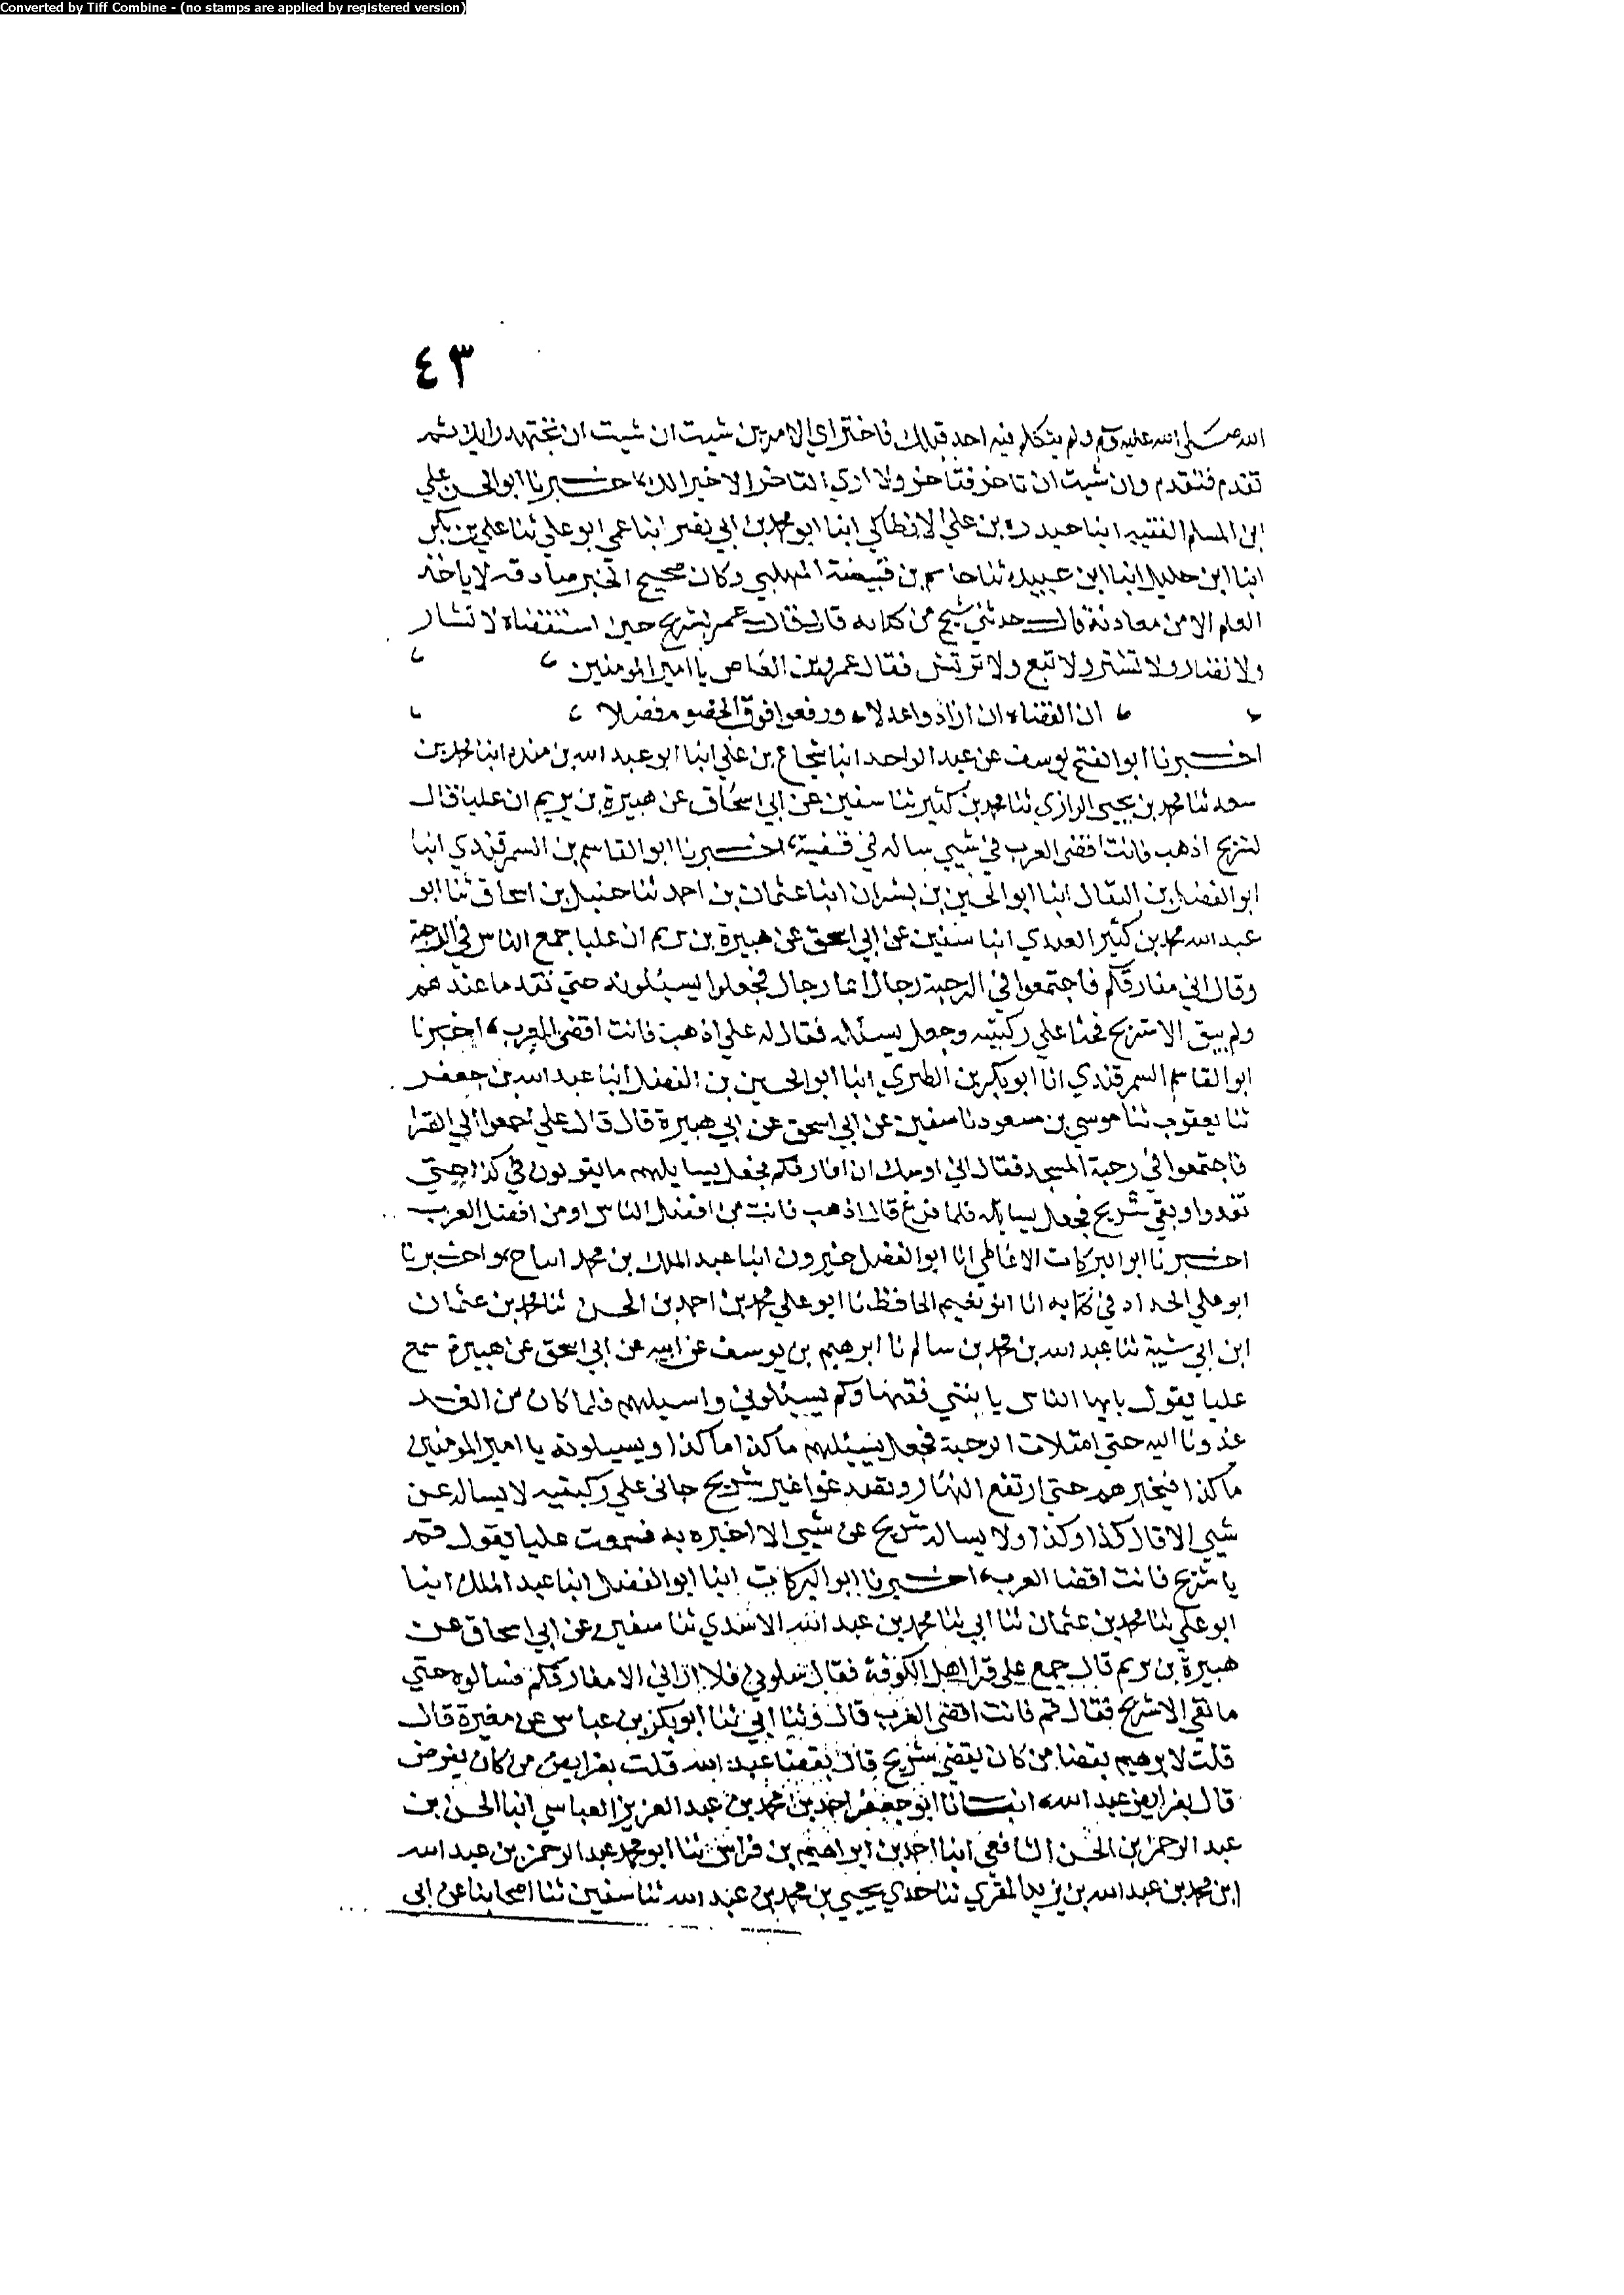 Converted by Tiff Combine - (no stamps are applied by registered version)
٤٣
الله صلى الله عليه وسلم ولم يتكلم فيه احد قبلك فاختر اي الامرين شيت ان شيت ان تجتهد رايك ثم
تقدم فتقدم وان شيت ان تاخر فتاخر ولا اري التاخر الا خيرا لك اخبرنا ابو الحسن علي
ابن المسلم الفقيه ابنا حيدرة بن علي الانطاكي ابنا ابو محمد بن ابي نصر ابنا عمي ابو علي ثنا علي بن بكر
ابنا ابن خليل ابنا ابن عبيده ثنا حاسم بن قبيصة المهلبي وكان صحيح الخبر صادقه لا ياخذ
العلم الا من معادنة قال حدثني شيخ من كنانه قال قال عمر لشريح حين استقضاه لا تشار
ولا تضار ولا تشتر ولا تبع ولا ترتش فقال عمرو بن العاص يا امير المومنين
ان القضاه ان ارادوا عدلا ورفعوا فوق الخصوم فضلا
اخبرنا ابو الفتح يوسف عن عبد الواحد ابنا شجاع بن علي ابنا ابو عبد الله بن منده ابنا محمد بن
سعد ثنا محمد بن يحيى الرازي ثنا محمد بن كثير ثنا سفين عن ابي اسحاق عن هبيرة بن يريم ان عليا قال
لشريح اذهب فانت اقضى العرب في شيي ساله في قضية اخبرنا ابو القاسم بن السمرقندي ابنا
ابو الفضل بن البقال ابنا ابو الحسين بن بشران ابنا عثمان بن احمد ثنا حنبل بن اسحاق ثنا ابو
عبد الله محمد بن كثير العبدي ابنا سفين عن ابي اسحق عن هبيرة بن يريم ان عليا جمع الناس في الرحبة
وقال اني مفارقكم فاجتمعوا في الرحبة رجال ايما رجال فجعلوا يسئلونه حتي نفد ما عندهم
ولم يبق الا شريح فجثا علي ركبتيه وجعل يسئله فقال له علي اذهب فانت اقضى العرب اخبرنا
ابو القاسم السمرقندي انا ابو بكر بن الطبري ابنا ابو الحسين بن الفضل ابنا عبد الله بن جعفر
ثنا يعقوب ثنا موسي بن مسعود نا سفين عن ابي اسحق عن ابي هبيرة قال قال علي اجمعوا لي القرا
فاجتمعوا في رحبة المسجد فقال اني اوشك ان افارقكم فجعل يسايلهم ما يقولون في كذا حتي
نفدوا وبقي شريح فجعل يسايله فلما فرغ قال اذهب فانت من افضل الناس او من افضل العرب
اخبرنا ابو البركات الانماطي انا ابو الفضل خيرون ابنا عبد الملك بن محمد اساح واخبرنا
ابو علي الحداد في كتابه انا ابو نعيم الحافظ نا ابو علي محمد بن احمد بن الحسن ثنا محمد بن عثمان
ابن ابي شيبة ثنا عبد الله بن محمد بن سالم نا ابرهيم بن يوسف عن ابيه عن ابي اسحق عن هبيرة سمع
عليا يقول يايها الناس يا تيني فقهاوكم يسيلوني واسيلهم فلما كان من الغد
غدونا اليه حتي امتلات الرحبة فجعل يسيلهم ما كذا ما كذا ويسيلونه يا امير المومنين
ما كذا فيخبرهم حتي ارتفع النهار ونفد عوا غير شريح جاثي علي ركبتيه لا يساله عن
شيي الا قال كذا وكذا ولا يساله شريح عن شيي الا اخبره به فسمعت عليا يقول قم
يا شريح فانت اقضا العرب اخبرنا ابو البركات ابنا ابو الفضل ابنا عبد الملك ابنا
ابو علي ثنا محمد بن عثمان ثنا ابي ثنا محمد بن عبد الله الاسدي ثنا سفين عن ابي اسحاق عن
هبيرة بن يريم قال جمع علي قرا اهل الكوفة فقال سلوني فلا اراني الا مفارقكم فسالوه حتي
ما بقي الا شريح فقال قم فانت اقضى العرب قال وثنا ابي ثنا ابو بكر بن عباس عن مغيرة قال
قلت لابرهيم بقضا من كان يقضي شريح قال بقضا عبد الله قلت بفرايض من كان يفرض
قال بفرايض عبد الله انبانا ابو جعفر احمد بن محمد بن عبد العزيز العباسي ابنا الحسن بن
عبد الرحمن بن الحسن الشافعي ابنا احمد بن ابراهيم بن فراس ثنا ابو محمد عبد الرحمن بن عبد الله
ابن محمد بن عبد الله بن يزيد المقري ثنا جدي يحيي بن محمد بن عبد الله ثنا سفين ثنا اصحابنا عن ابي